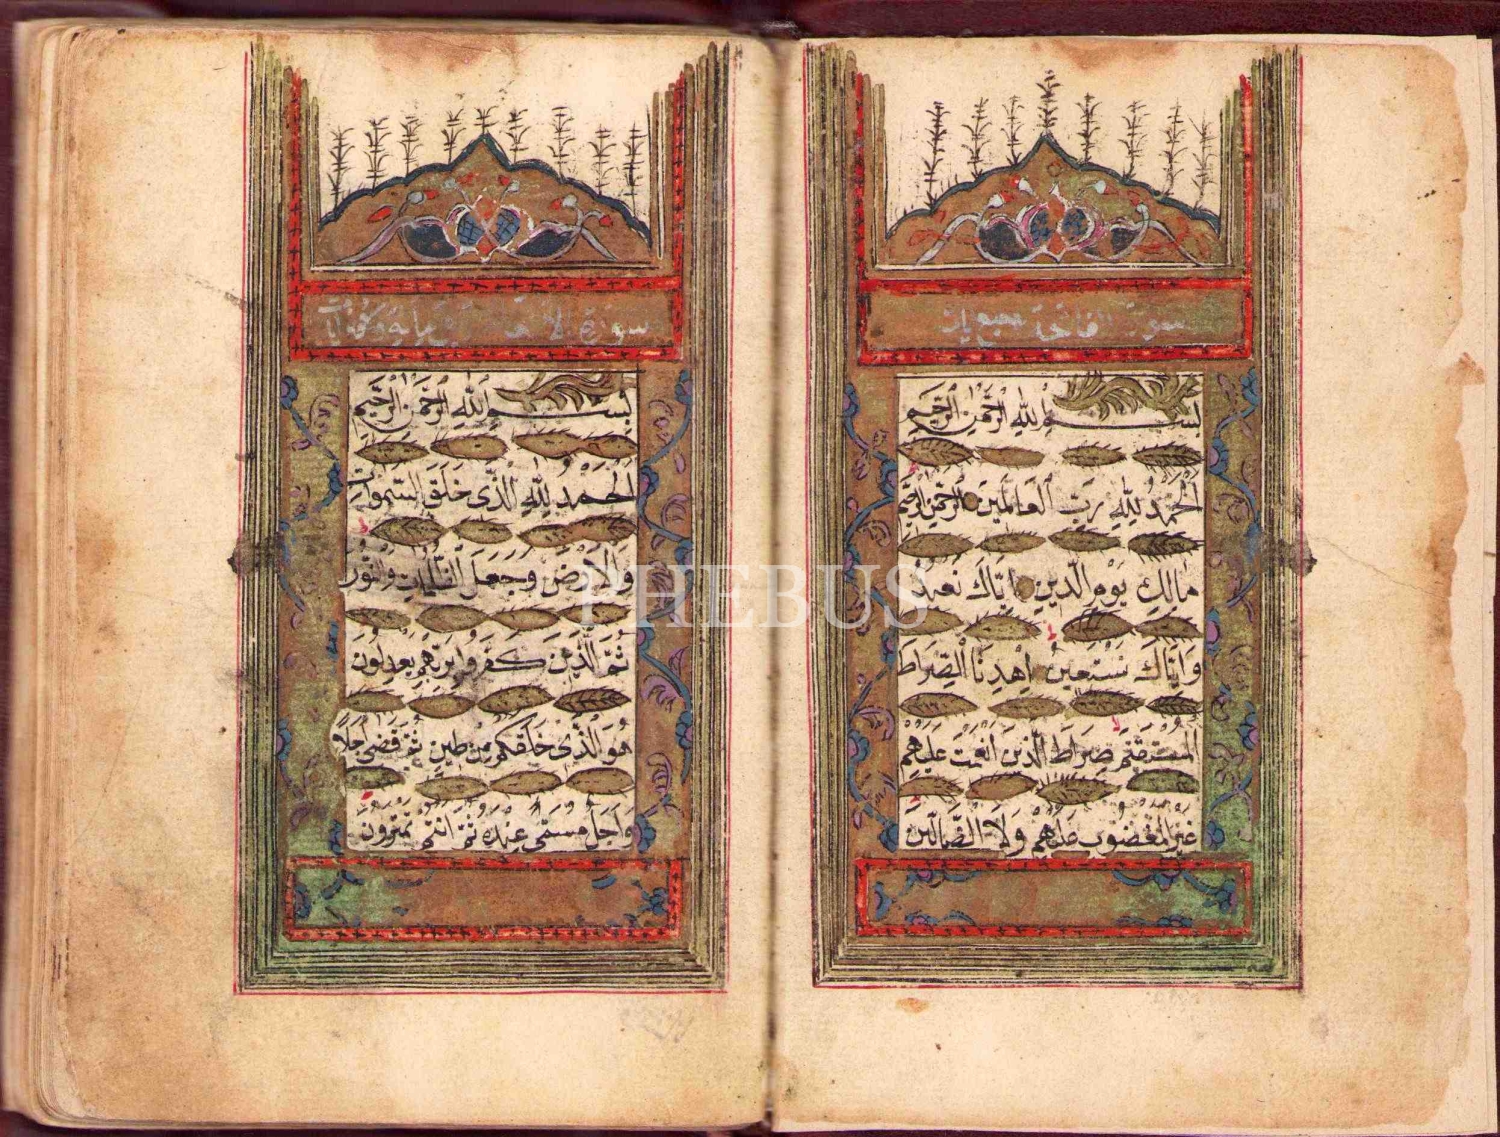 بِسْمِ اللّٰهِ الرَّحْمٰنِ الرَّحِيمِ
اَلْحَمْدُ لِلّٰهِ رَبِّ الْعَالَمِينَ الرَّحْمٰنِ الرَّحِيمِ
مَالِكِ يَوْمِ الدِّينِ اِيَّاكَ نَعْبُدُ
وَاِيَّاكَ نَسْتَعِينُ اِهْدِنَا الصِّرَاطَ
الْمُسْتَقِيمَ صِرَاطَ الَّذِينَ اَنْعَمْتَ عَلَيْهِمْ
غَيْرِ الْمَغْضُوبِ عَلَيْهِمْ وَلَا الضَّالِّينَ
بِسْمِ اللّٰهِ الرَّحْمٰنِ الرَّحِيمِ
اَلْحَمْدُ لِلّٰهِ الَّذِي خَلَقَ السَّمٰوَاتِ
وَالْاَرْضَ وَجَعَلَ الظُّلُمَاتِ وَالنُّورَ
ثُمَّ الَّذِينَ كَفَرُوا بِرَبِّهِمْ يَعْدِلُونَ
هُوَ الَّذِي خَلَقَكُمْ مِنْ طِينٍ ثُمَّ قَضٰى اَجَلًا
وَاَجَلٌ مُسَمًّى عِنْدَهُ ثُمَّ اَنْتُمْ تَمْتَرُونَ
PHEBUS